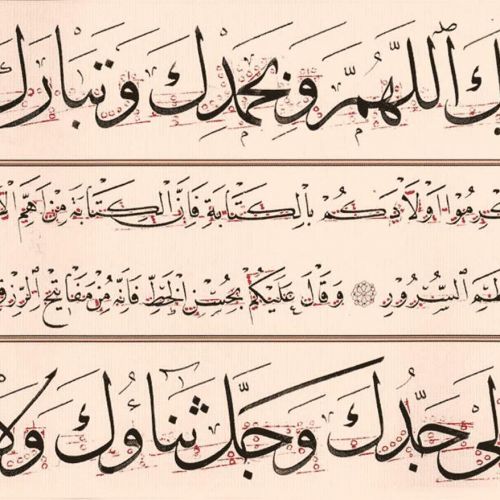 ك اللّهُمَّ وَبِحَمْدِكَ وَتَبَارَكَ
كرِمُوا اَوْلَادَكُمْ بِالْكِتَابَةِ فَاِنَّ الْكِتَابَةَ مِنْ اَهَمِّ
السُّرُورِ ۞ وَقَالَ عَلَيْكُمْ بِحُسْنِ الْخَطِّ فَاِنَّهُ مِنْ مَفَاتِيحِ الرِّزْقِ
لى جَدُّكَ وَجَلَّ ثَنَاؤُكَ وَلَا